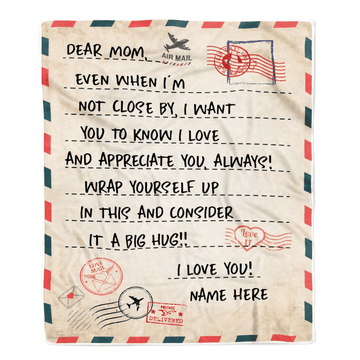 AIR MAIL
DEAR MOM,
EVEN WHEN I'M
NOT CLOSE BY, I WANT
YOU TO KNOW I LOVE
AND APPRECIATE YOU, ALWAYS!
WRAP YOURSELF UP
IN THIS AND CONSIDER
IT A BIG HUG!!
Love
U
I LOVE YOU!
LOVE
MAIL
NAME HERE
DELIVERED